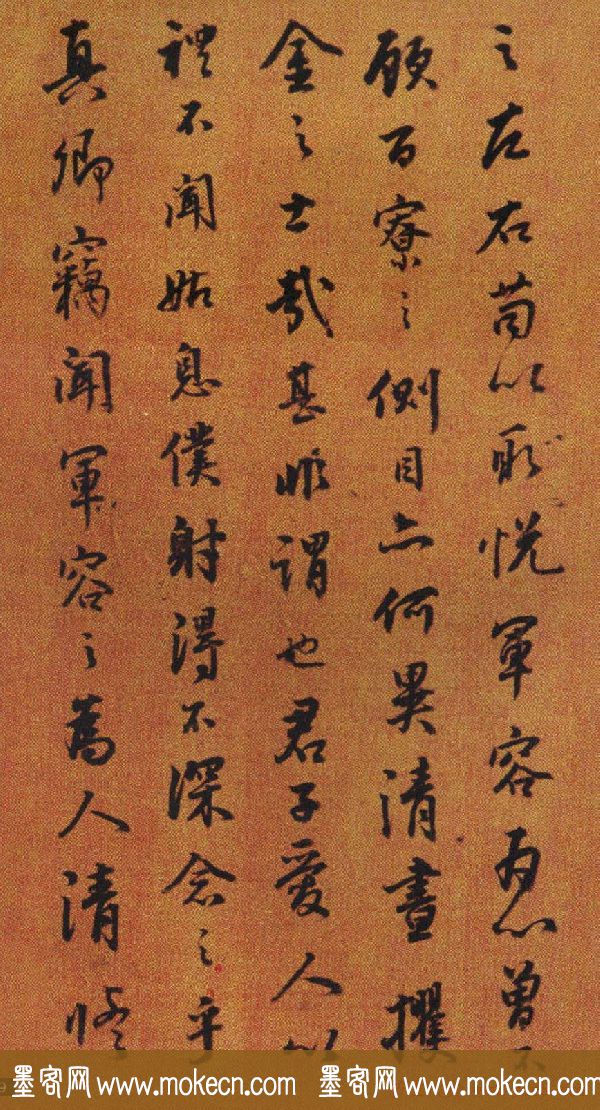 之左右苟以取悅軍容為心曾不
顧百寮之側目亦何異清晝攫
金之士哉甚非謂也君子愛人以
禮不聞姑息僕射得不深念之乎
真卿竊聞軍容之為人清修
墨客网 www.mokecn.com 墨客网 www.mokecn.com